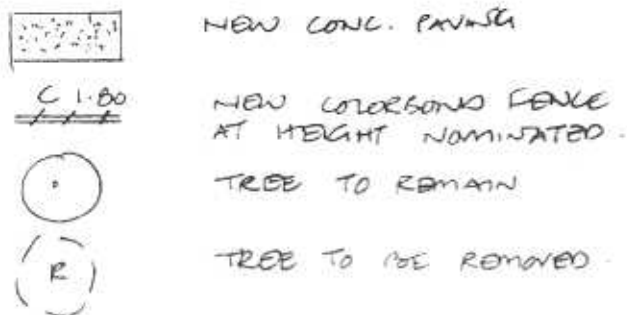 NEW CONC. PAVING
C 1.80
NEW COLORBOND FENCE
AT HEIGHT NOMINATED.
TREE TO REMAIN
R
TREE TO BE REMOVED.